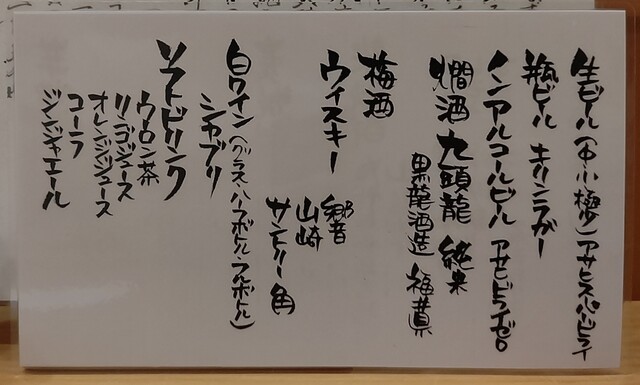 生ビール（中・小・極少）アサヒスーパードライ
瓶ビール キリンラガー
ノンアルコールビール アサヒドライゼロ
燗酒 九頭龍 純米
黒龍酒造 福井県
梅酒
ウイスキー 響
山崎
サントリー角
白ワイン（グラス・ハーフボトル・フルボトル）
シャブリ
ソフトドリンク
ウーロン茶
リンゴジュース
オレンジジュース
コーラ
ジンジャエール